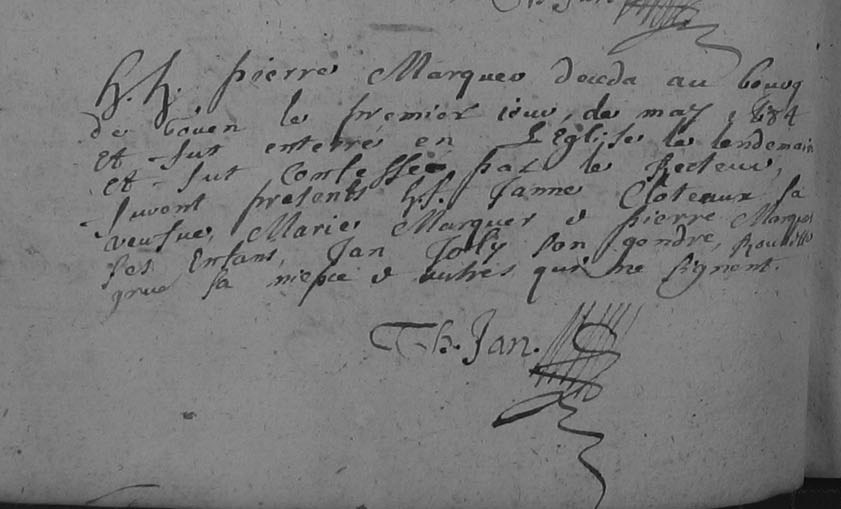 h. h. pierre Marquer deceda au bourg
de Goüen le premier iour, de may, 1684
et fut enterré en L'Eglise le lendemain
et fut Confessé par le Recteur,
furent presents h. f. Janne Cloteaux sa
veufue, Marie Marquer & pierre Marquer
ses Enfans, Jan Joly son gendre,
sa niepce & autres qui ne signent.
Th. Jan.